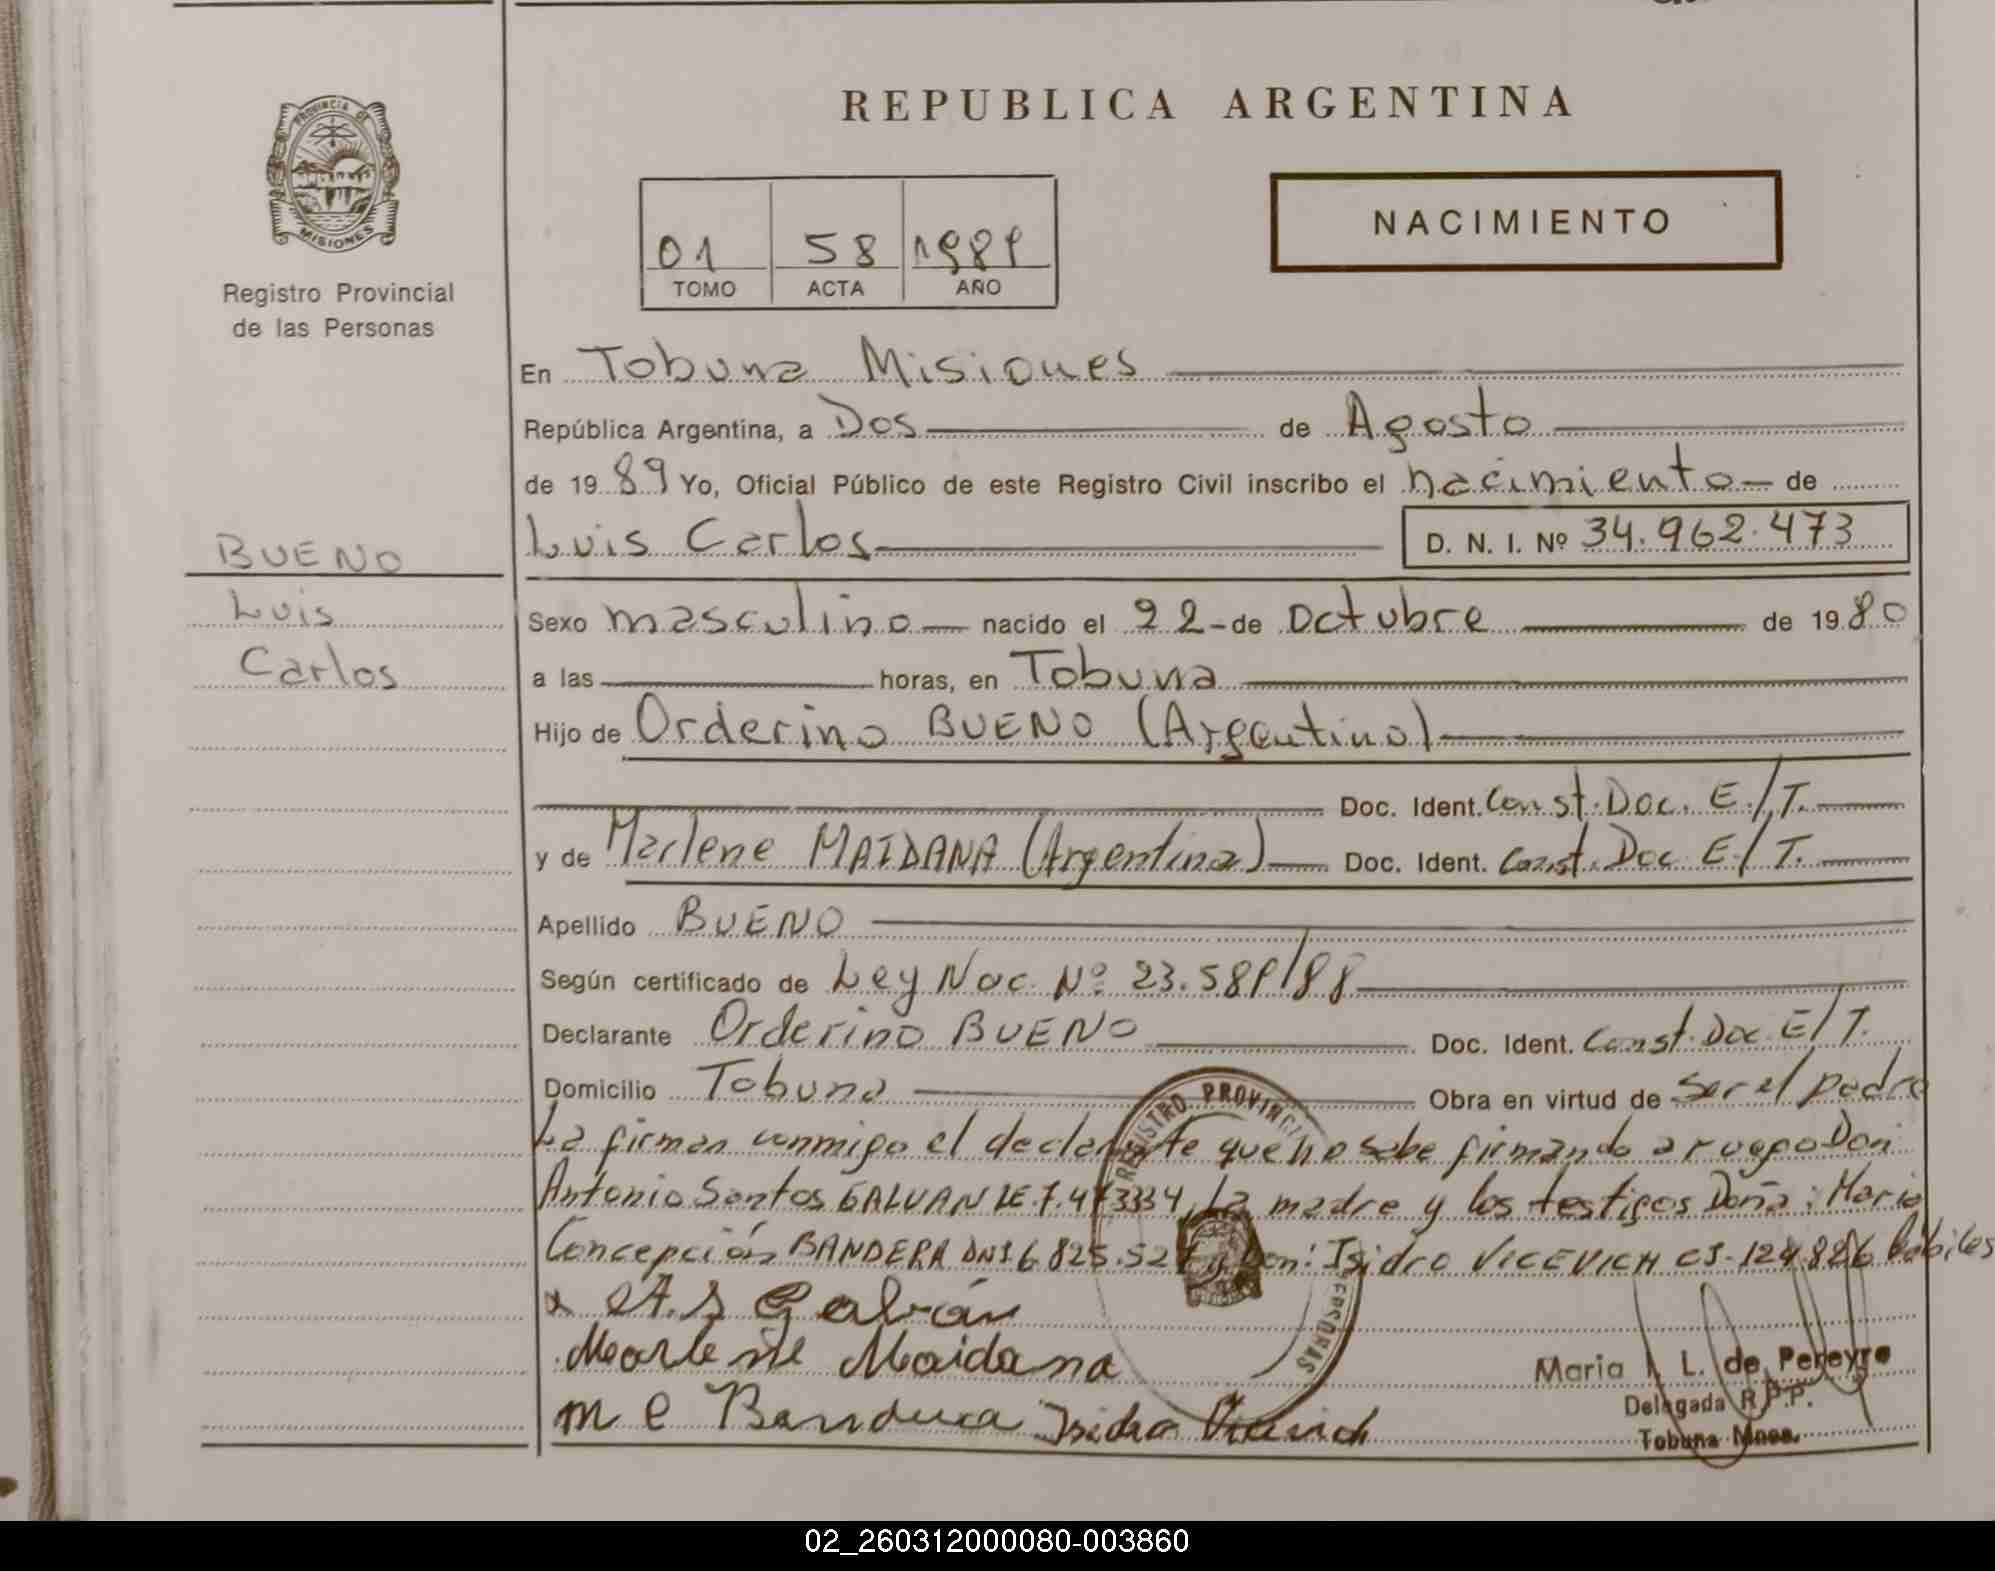 PROVINCIA DE
MISIONES
Registro Provincial
de las Personas
REPUBLICA ARGENTINA
NACIMIENTO
01 58 1989
TOMO ACTA AÑO
En Tobuna Misiones
República Argentina, a Dos de Agosto
de 1989 Yo, Oficial Público de este Registro Civil inscribo el nacimiento de
Luis Carlos D. N. I. Nº 34.962.473
BUENO
Luis
Carlos
Sexo masculino nacido el 22 de Octubre de 1980
a las horas, en Tobuna
Hijo de Orderino BUENO (Argentino)
Doc. Ident. Const. Doc. E./T.
y de Marlene MAIDANA (Argentina) Doc. Ident. Const. Doc E./T.
Apellido BUENO
Según certificado de Ley Nac. Nº 23.589/88
Declarante Orderino BUENO Doc. Ident. Const. Doc E/T.
Domicilio Tobuna Obra en virtud de ser el padre
La firman conmigo el declarante que no sabe firmando a ruego Don
Antonio Santos GALVAN LE.7.473334, La madre y los testigos Doña: Maria
Concepción BANDERA DNI 6.825.527 y Don: Isidro VICEVICH CI-124.886 habiles
REGISTRO PROVINCIAL PERSONAS
x A. S Galván
Marlene Maidana
m C Bandera Isidro Vicevich
Maria L. de Pereyra
Delegada R.P.P.
Tobuna Mnes.
02_260312000080-003860